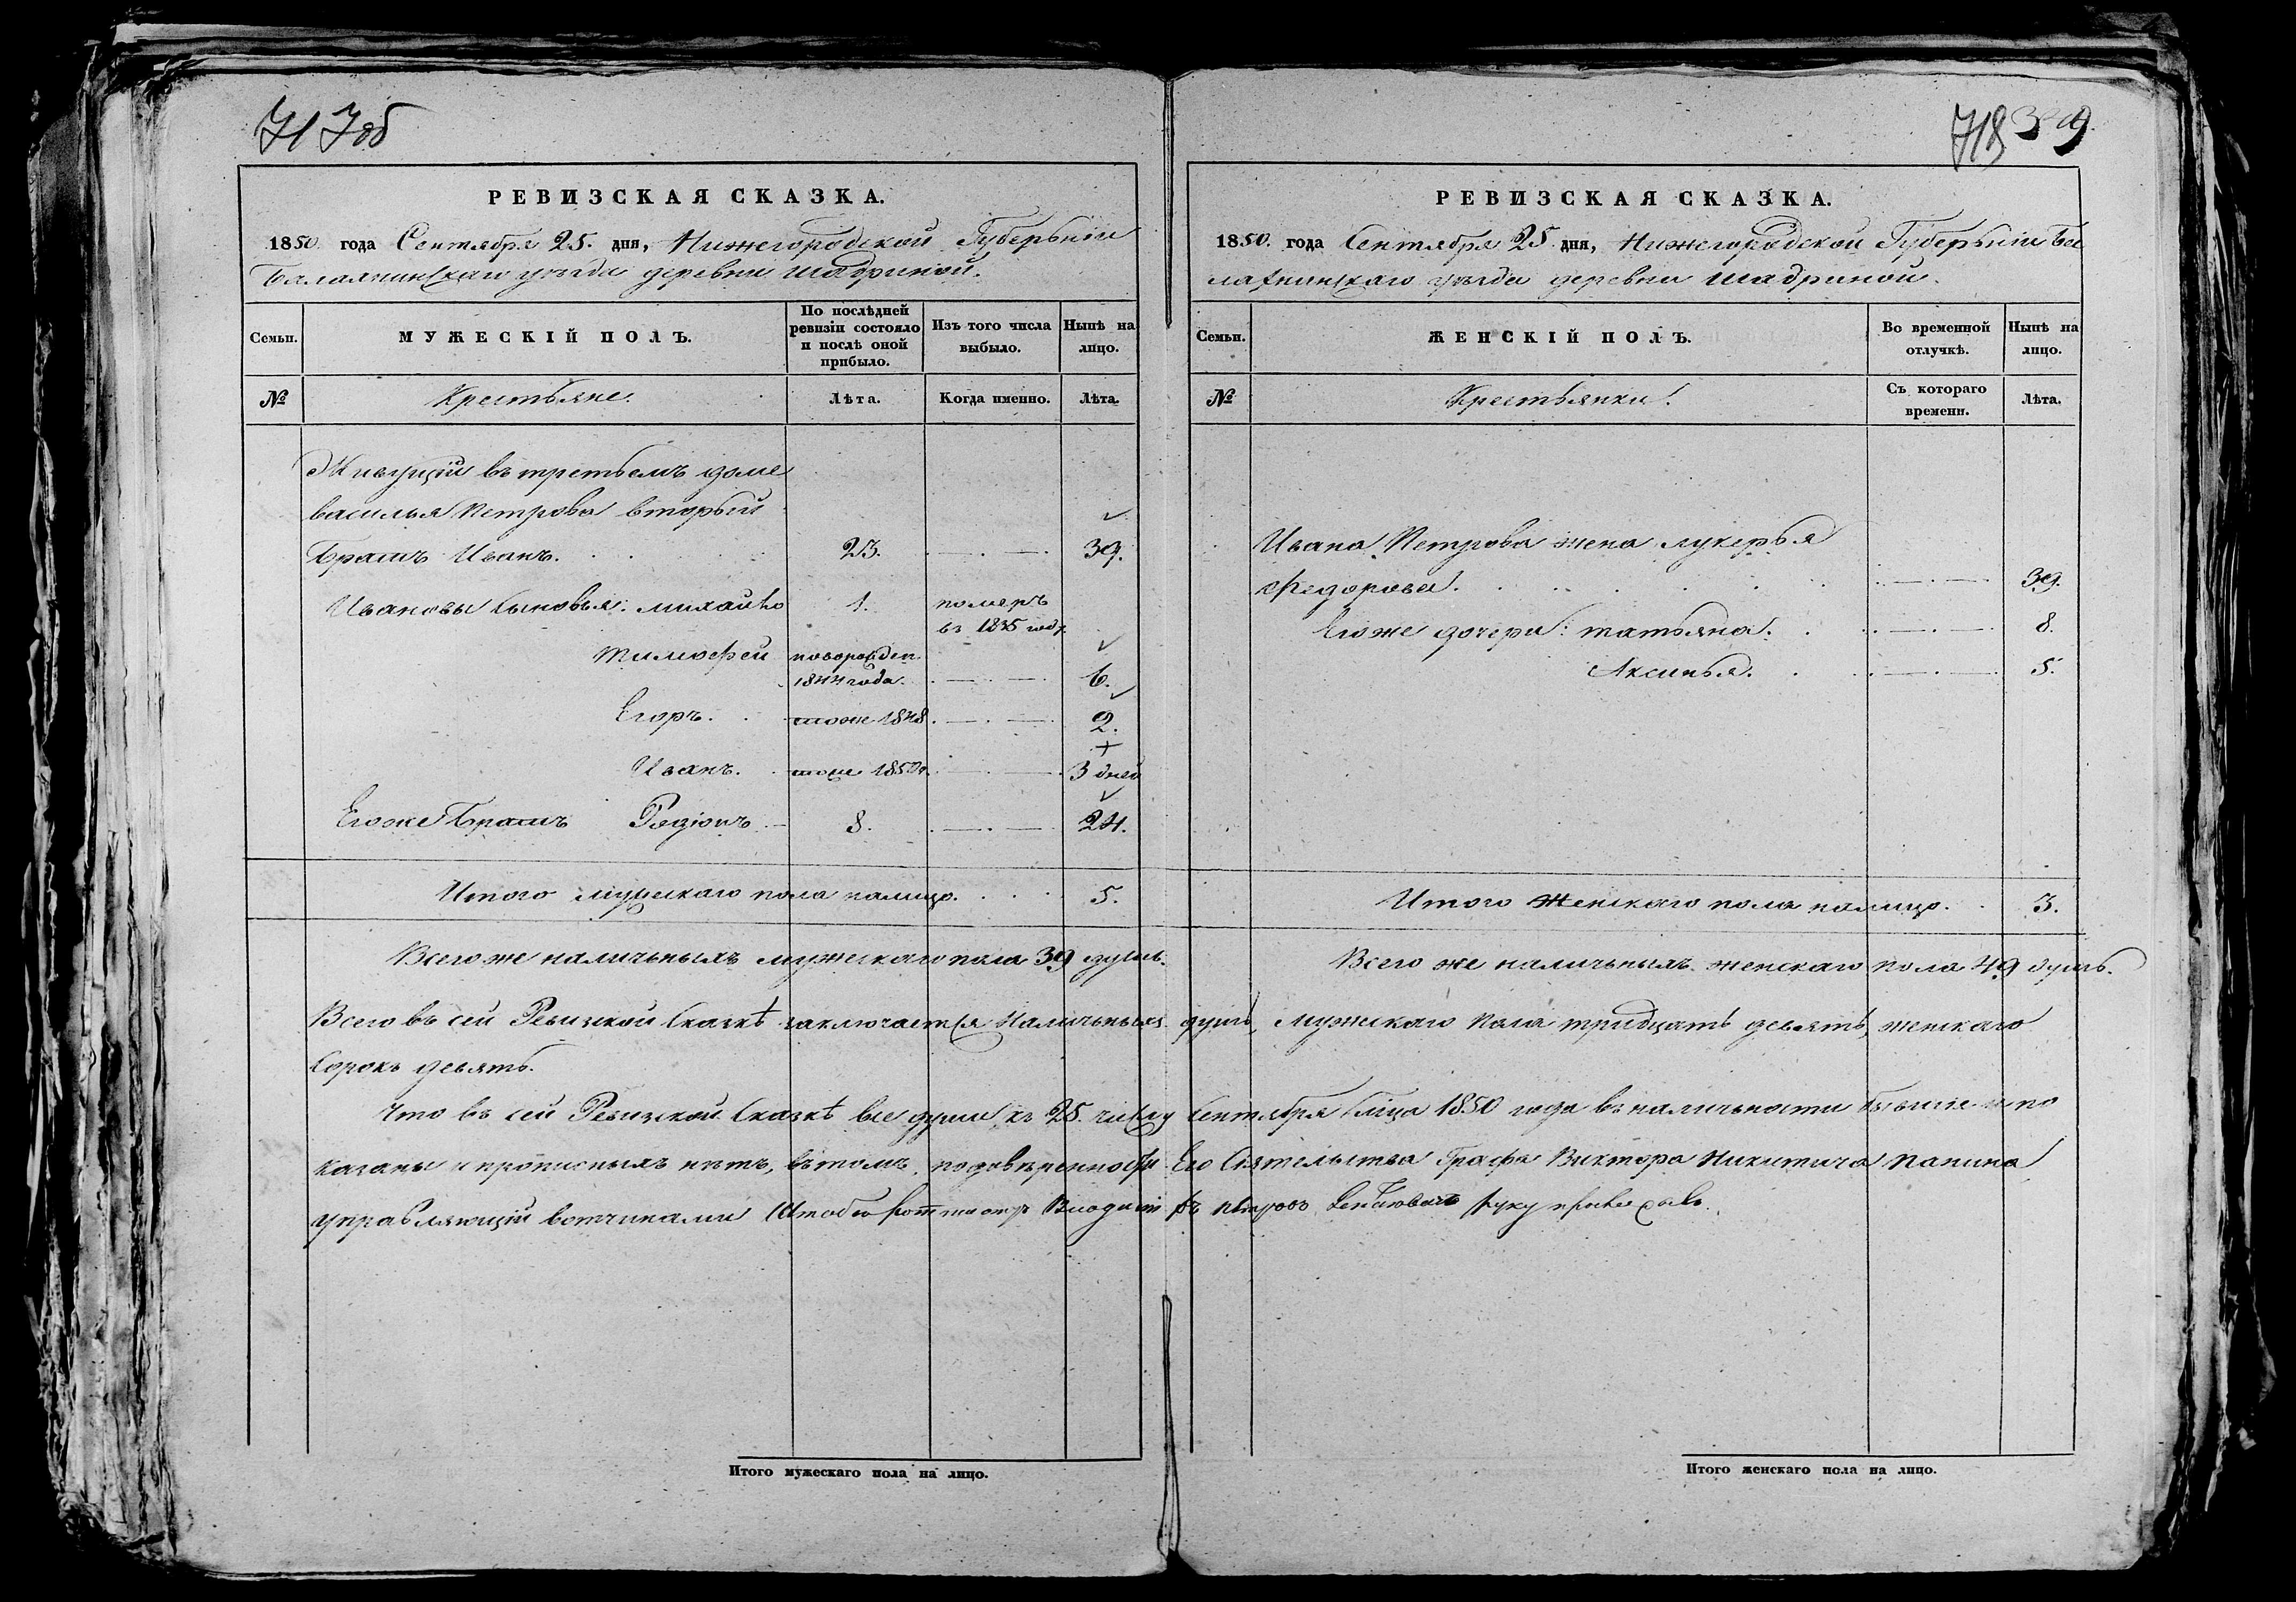 717 об
РЕВИЗСКАЯ СКАЗКА.
1850 года Сентября 25. дня, Нижегородской Губерьнiи
Балахнинскаго уѣзда деревни Шадриной.
Семьи.
МУЖЕСКIЙ ПОЛЪ.
По послѣдней ревизiи состояло и послѣ оной прибыло.
Изъ того числа выбыло.
Нынѣ на лицо.
№
Крестьяне.
Лѣта.
Когда именно.
Лѣта.
Живущiй въ третьемъ доме
василья Петрова вторый
братъ Иванъ. 23. 39.
Ивановы сыновья: михайло 1. померъ
въ 1835 году
Тимофей новорожден.
1844 года. 6.
Егоръ. тоже 1848. 2.
Иванъ. тоже 1850 г. 3 дней
Его же братъ Родiонъ 8. 24.
Итого мужескаго пола налицо. 5.
Всего же наличьныхъ мужескаго пола 39 душъ.
718 399.
РЕВИЗСКАЯ СКАЗКА.
1850. года Сентября 25 дня, Нижегородской Губерьнiи Ба
лахнинскаго уѣзда деревни Шадриной.
Семьи.
ЖЕНСКIЙ ПОЛЪ.
Во временной отлучкѣ.
Нынѣ на лицо.
№
Крестьянки.
Съ котораго времени.
Лѣта.
Ивана Петрова жена лукерья
Федорова. 39.
Его же дочери: татьяна. 8.
Аксинья. 5.
Итого женскаго пола налицо. 3.
Всего же наличьныхъ женскаго пола 49 душъ.
Всего въ сей Ревизской Сказкѣ заключается наличьныхъ душъ, мужскаго пола тридцать девять, женскаго
сорокъ девять.
Что въ сей Ревизской Сказкѣ все души, къ 25. числу Сентября м͠ца 1850 года въ наличьности бывшiе и по
казаны и прописныхъ нѣтъ, въ томъ по довѣренности Его Сiятельства Графа Виктора Никитича Панина
управляющiй вотчинами Штабс ротмистр руку приложилъ.
Итого мужескаго пола на лицо.
Итого женскаго пола на лицо.